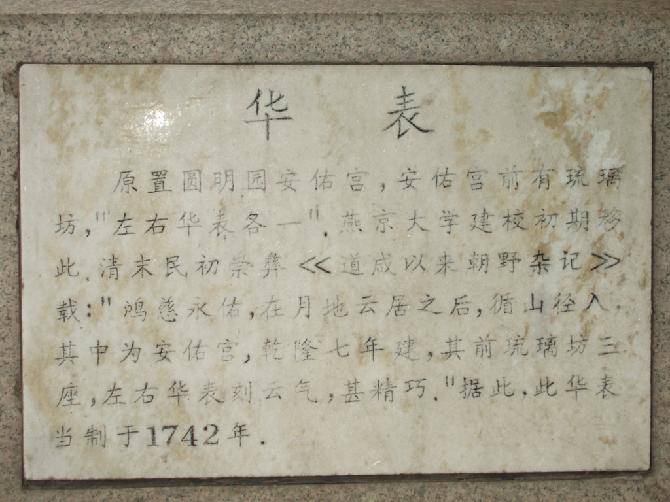 华表
原置圆明园安佑宫,安佑宫前有琉璃
坊,"左右华表各一".燕京大学建校初期移
此.清末民初崇彝《道咸以来朝野杂记》
载:"鸿慈永佑,在月地云居之后,循山径入.
其中为安佑宫,乾隆七年建,其前琉璃坊三
座,左右华表刻云气,甚精巧."据此,此华表
当制于1742年.